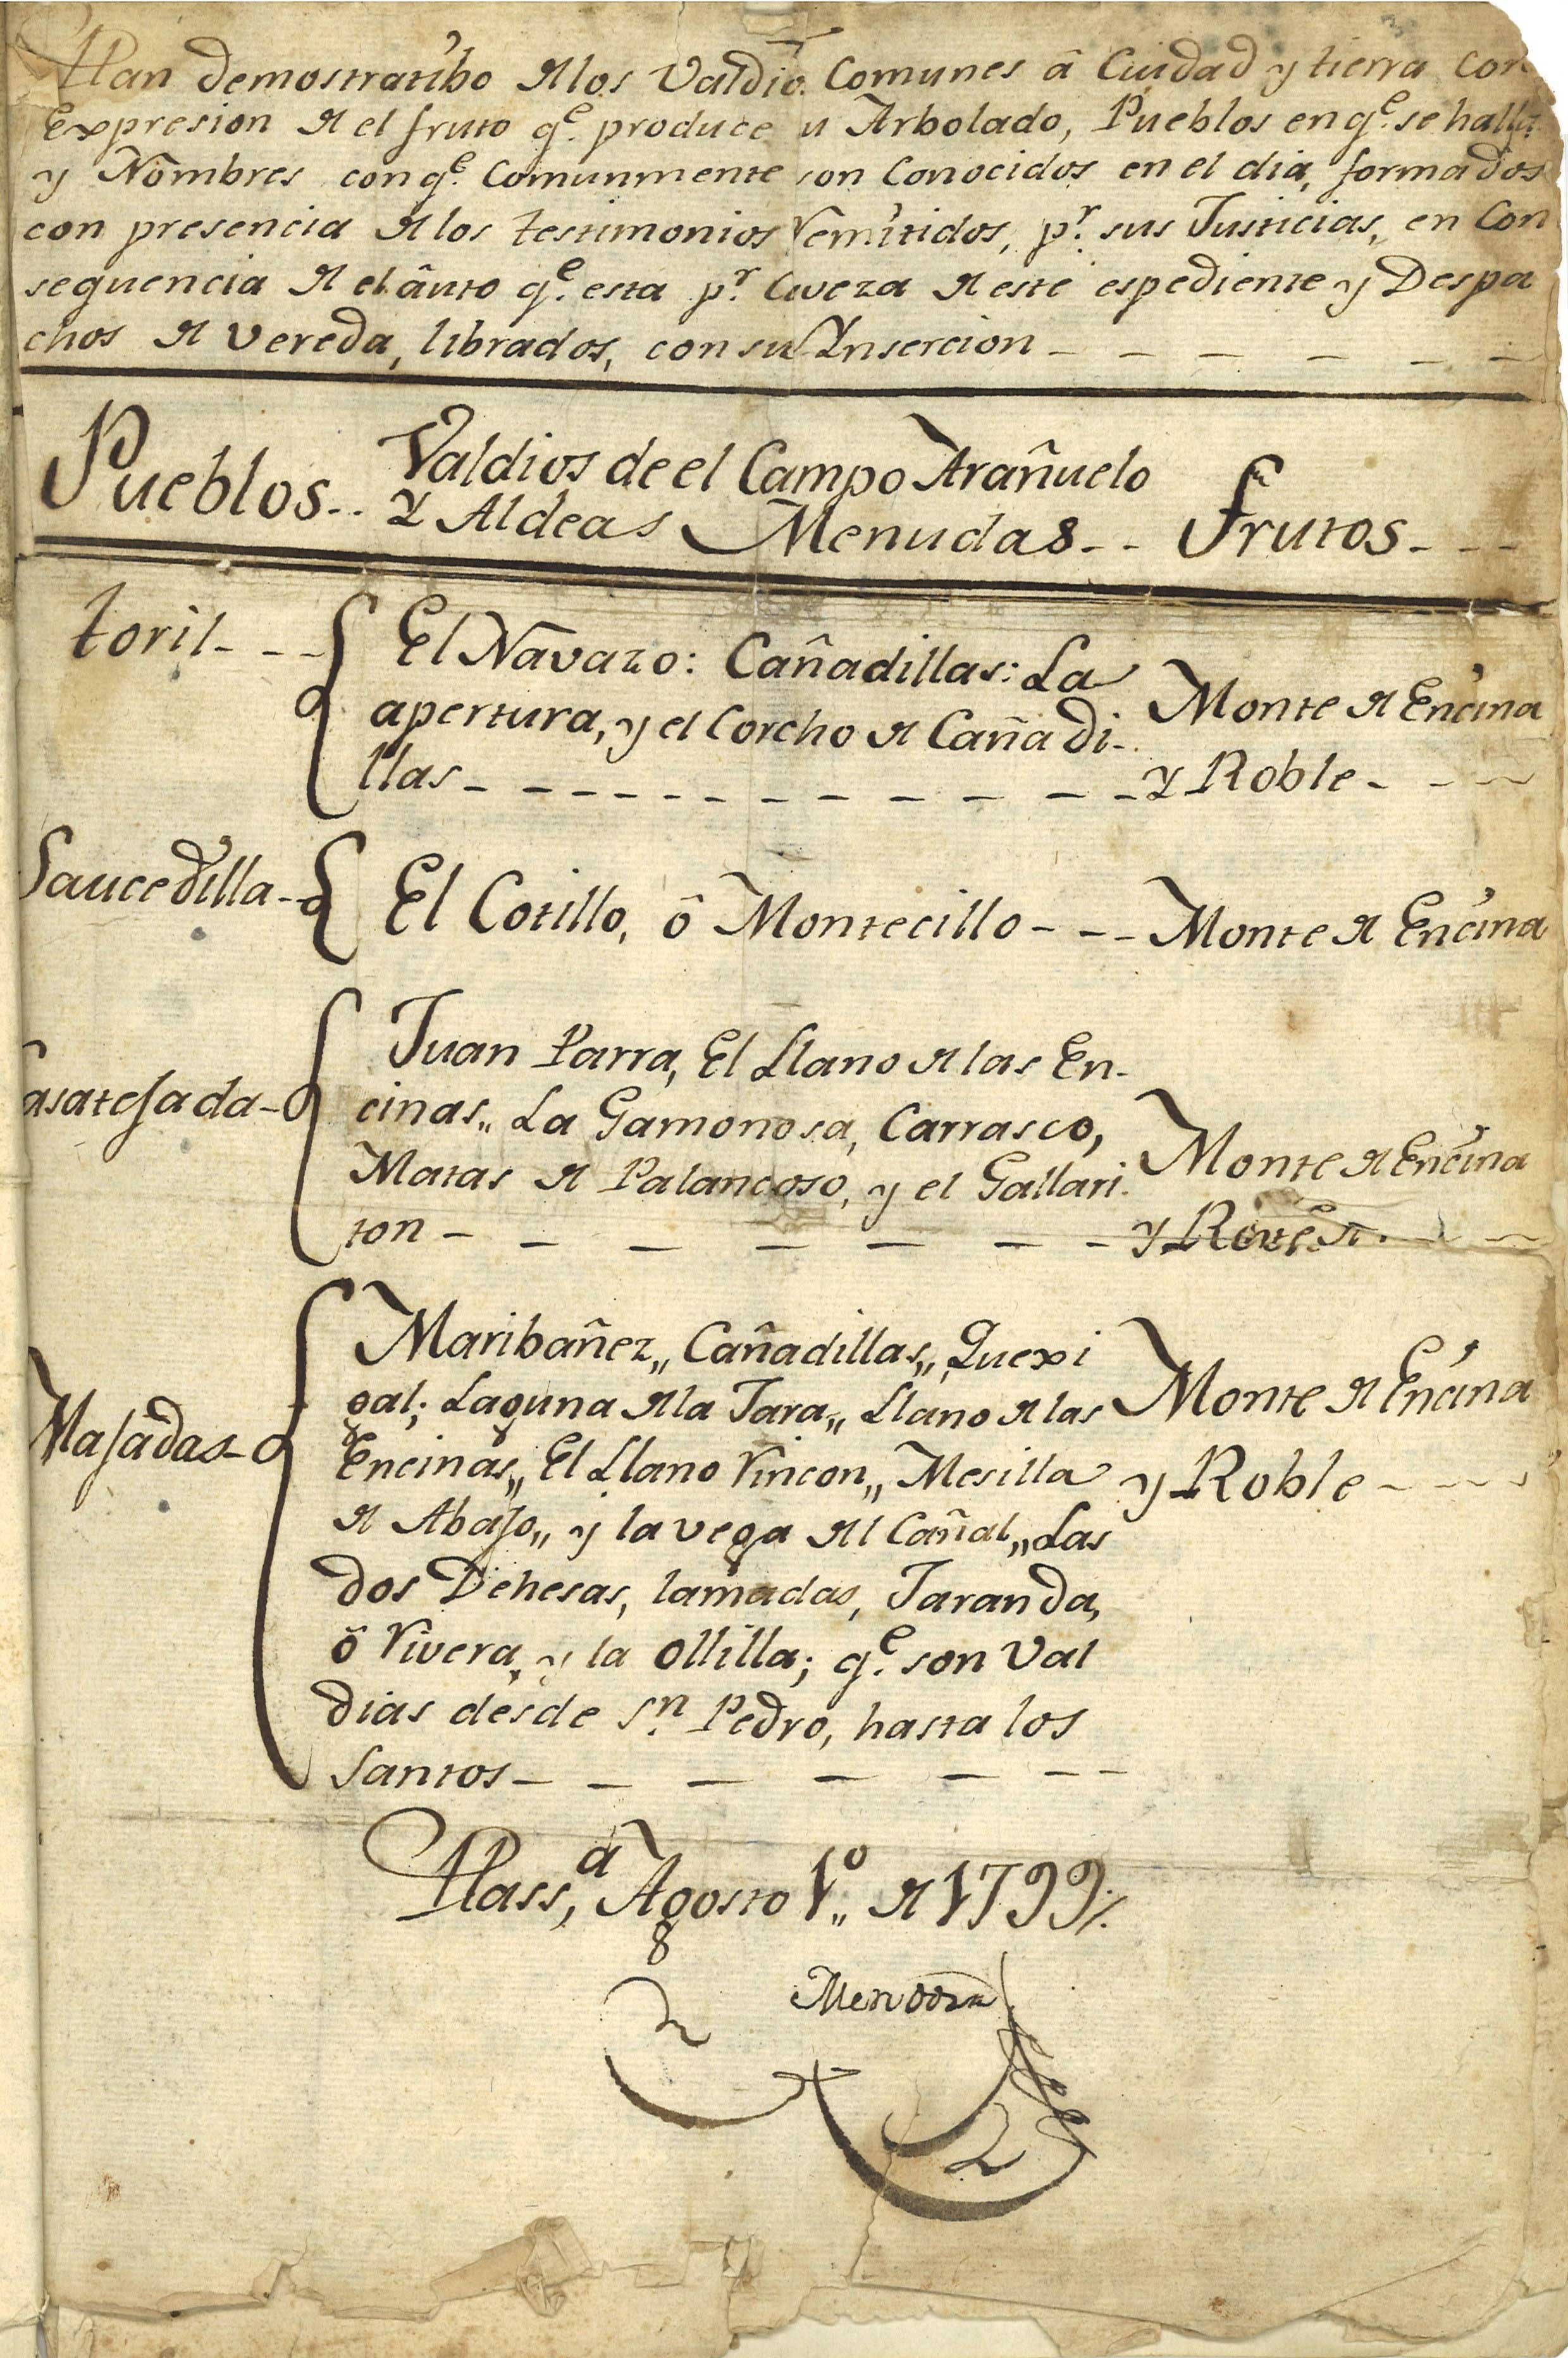 Plan demostratibo de los Valdios Comunes â Ciudad y tierra con
Expresion de el fruto q.e produce su Arbolado, Pueblos en q.e se halla
y Nombres con q.e Comunmente son Conocidos en el dia, formados
con presencia de los testimonios Remitidos, p.r sus Justicias, en Con
sequencia de el âuto q.e esta p.r Caveza de este espediente y Despa
chos de Vereda, librados, con su Ynsercion
Pueblos..
Valdios de el Campo Arañuelo
Y Aldeas Menudas--
frutos---
toril---
El Navazo: Cañadillas: La
apertura, y el Corcho de Cañadi-
llas
Monte de Encina
Y Roble-
Saucedilla--
El Cotillo, ô Montecillo---
Monte de Encina
asatejada-
Juan Parra, El Llano de las En-
cinas,, La Gamonosa, Carrasco,
Matas de Palancoso, y el Gallari-
ton
Monte de Encina
y
Majadas-
Maribañez,, Cañadillas,, Quexi
gal; Laguna de la Jara,, Llano de las
Encinas,, El Llano Rincon,, Mesilla
de Abajo,, y la vega del Cañal,, Las
dos Dehesas, lamadas, Jaranda,
ô Rivera, y la Ollilla; q.e son Val
dias desde S.n Pedro, hasta los
Santos
Monte de Encina
y Roble
Plass,a Agosto 1.o de 1799
Mendoza